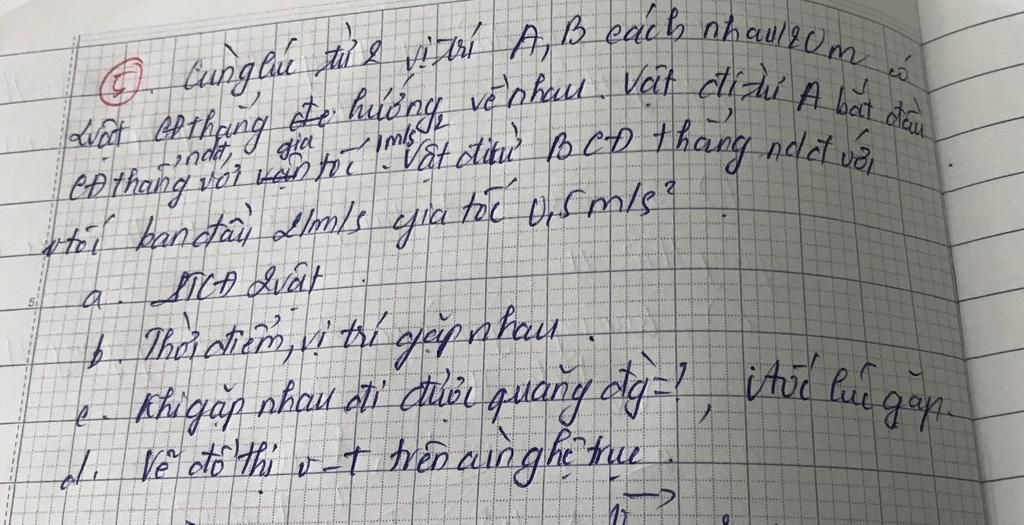 ⑤. Cùng lúc từ 2 vị trí A, B cách nhau 120m có
2 vật CĐ thẳng hướng về nhau. Vật đi từ A bắt đầu
CĐ thẳng ndđ, với gia tốc 1m/s². Vật đi từ B CĐ thẳng ndđ với
vtốc ban đầu 2m/s gia tốc 0,5m/s²
a. PTCĐ 2 vật.
b. Thời điểm, vị trí gặp nhau.
c. Khi gặp nhau đi được quãng đg=?, vtốc lúc gặp.
d. Vẽ đồ thị v-t trên cùng hệ trục.